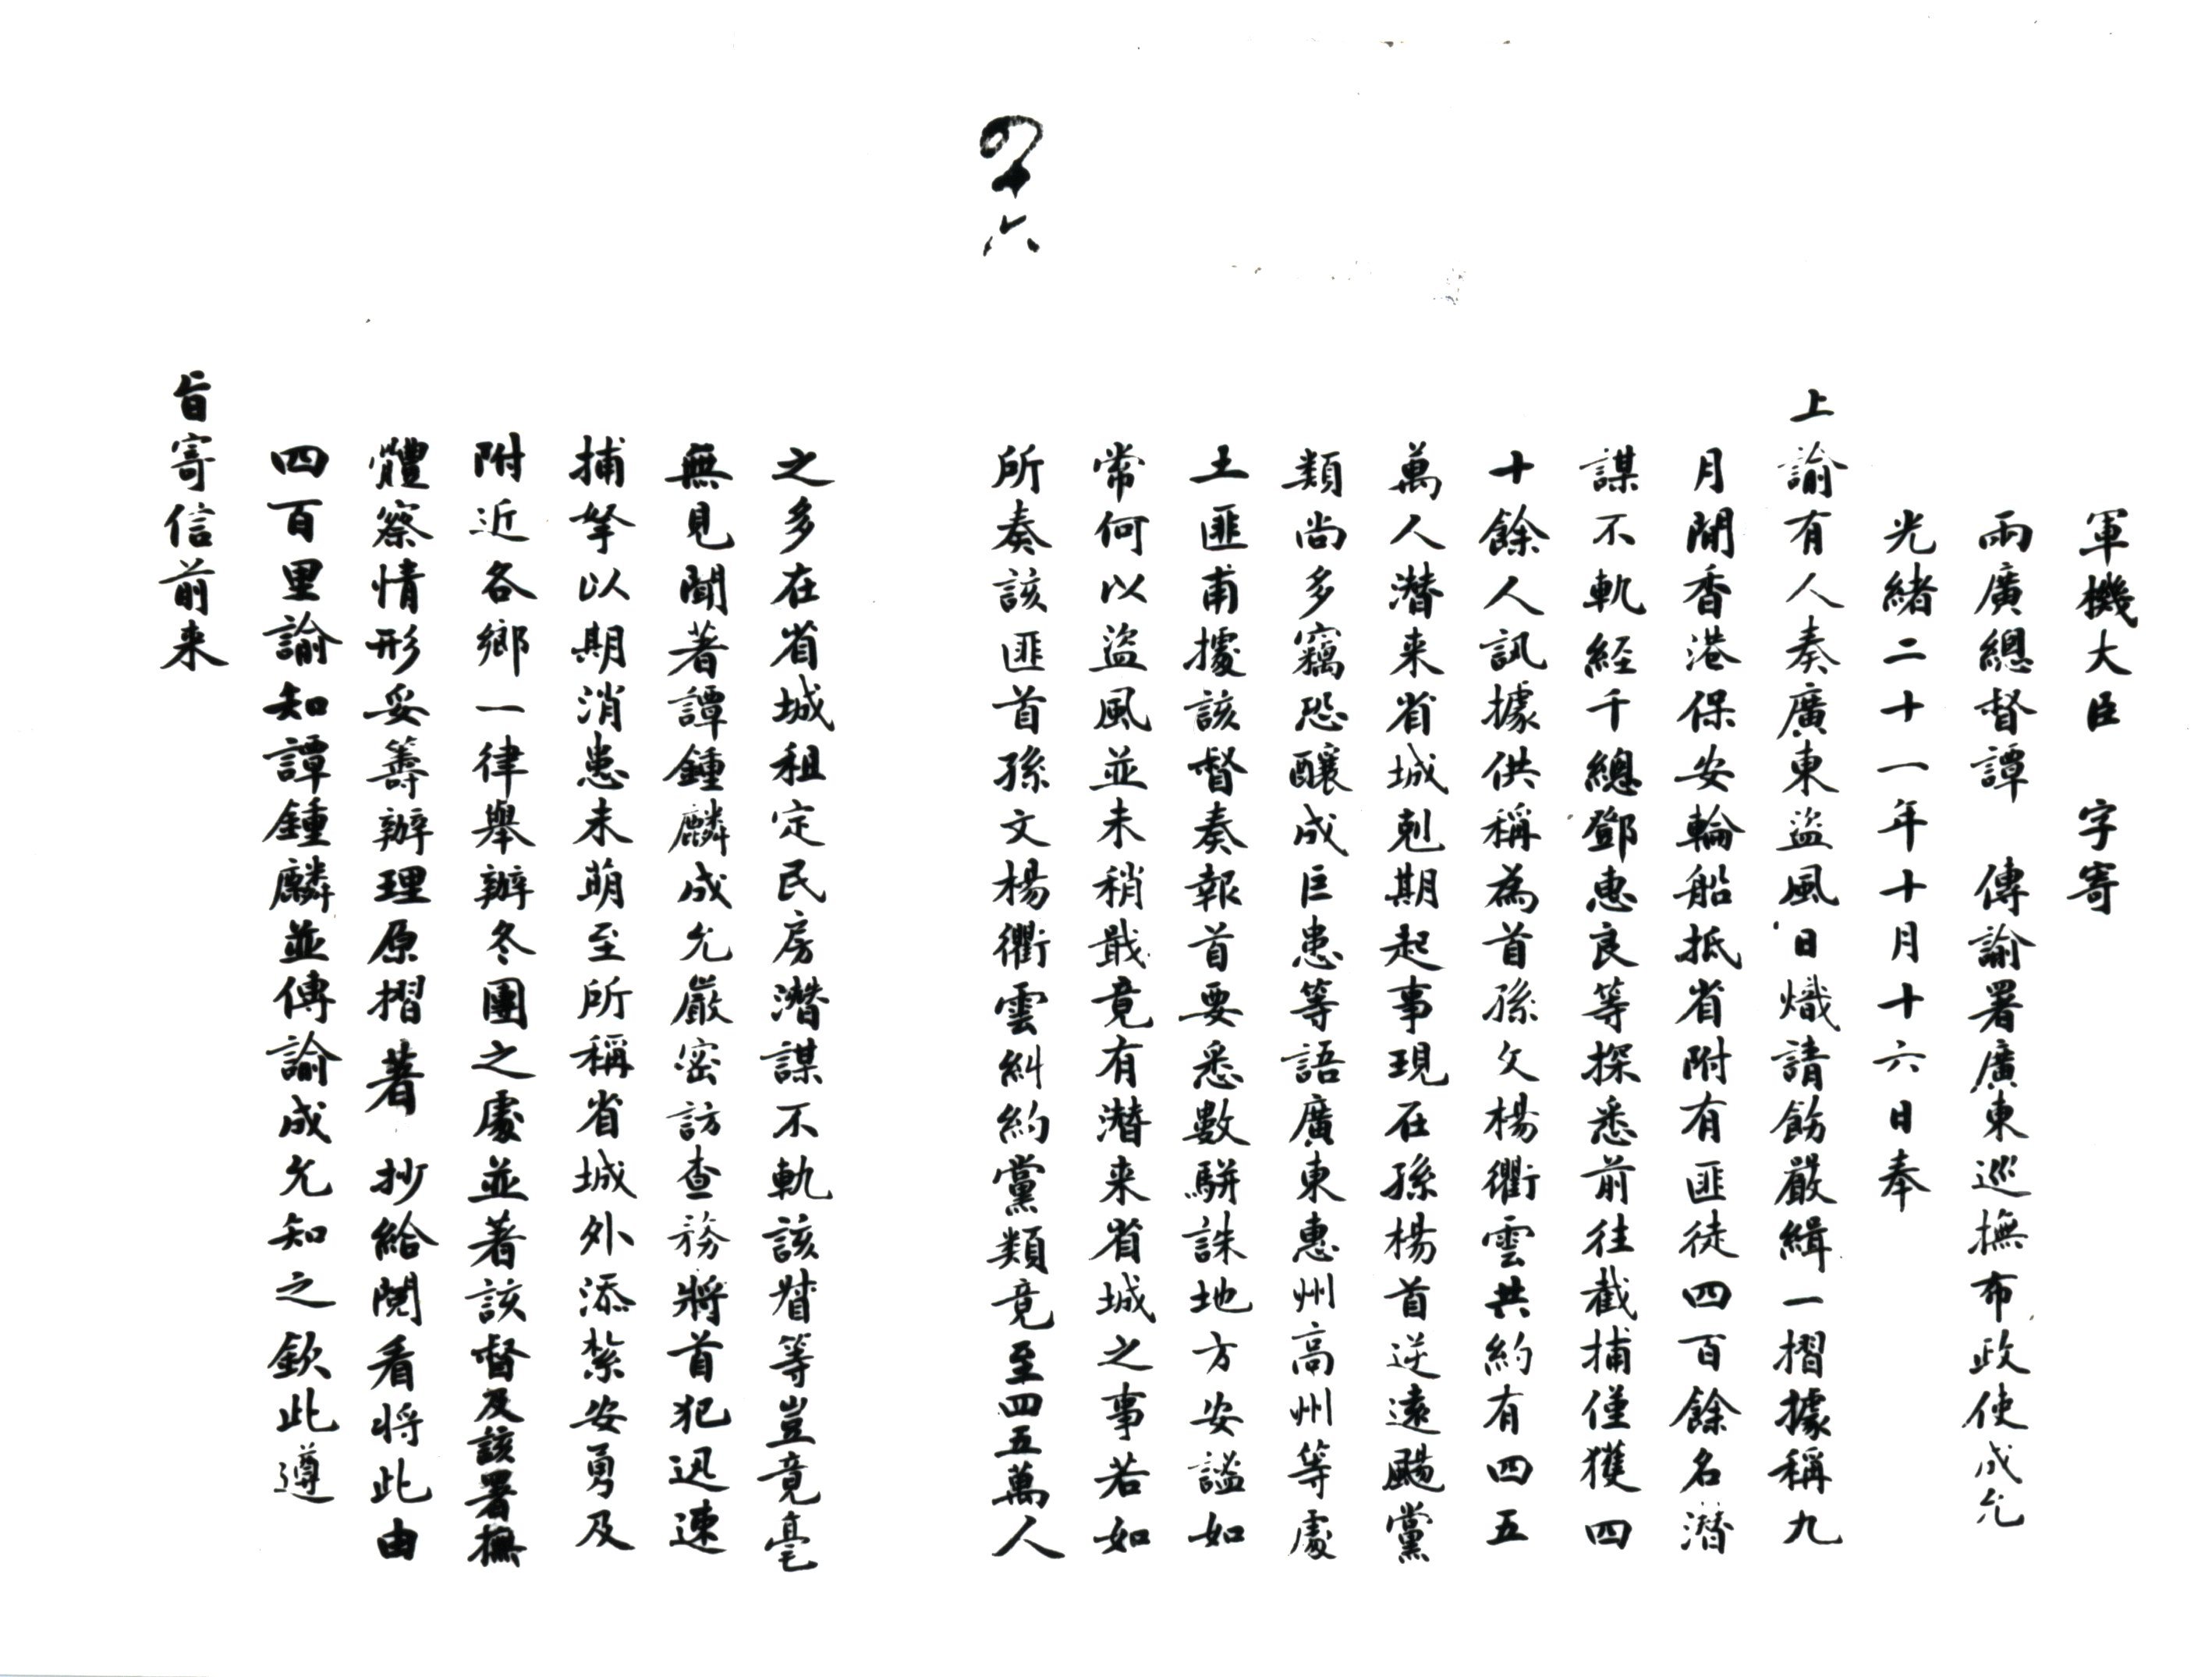 軍機大臣 字寄
兩廣總督譚 傳諭署廣東巡撫布政使成允
光緒二十一年十月十六日奉
上諭有人奏廣東盜風日熾請飭嚴緝一摺據稱九
月間香港保安輪船抵省附有匪徒四百餘名潛
謀不軌經千總鄧惠良等探悉前往截捕僅獲四
十餘人訊據供稱為首孫文楊衢雲共約有四五
萬人潛来省城剋期起事現在孫楊首逆遠颺黨
類尚多竊恐釀成巨患等語廣東惠州高州等處
土匪甫據該督奏報首要悉數駢誅地方安謐如
常何以盜風並未稍戢竟有潛来省城之事若如
所奏該匪首孫文楊衢雲糾約黨類竟至四五萬人
十六
之多在省城租定民房潛謀不軌該督等豈竟毫
無見聞著譚鍾麟成允嚴密訪查務將首犯迅速
捕拏以期消患未萌至所稱省城外添紮安勇及
附近各鄉一律舉辦冬團之處並著該督及該署撫
體察情形妥籌辦理原摺著抄給閱看將此由
四百里諭知譚鍾麟並傳諭成允知之欽此遵
旨寄信前来